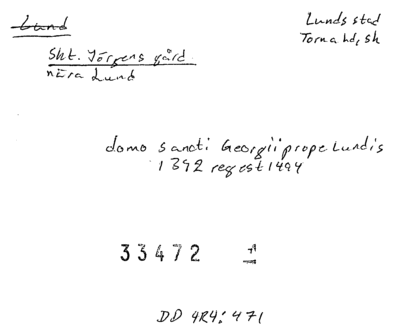 Lund
Lunds stad
Torna hd, Sk
Skt. Jörgens gård
nära Lund
domo sancti Georgii prope Lundis
1392 regest 1494
33472
DD 4R4: 471